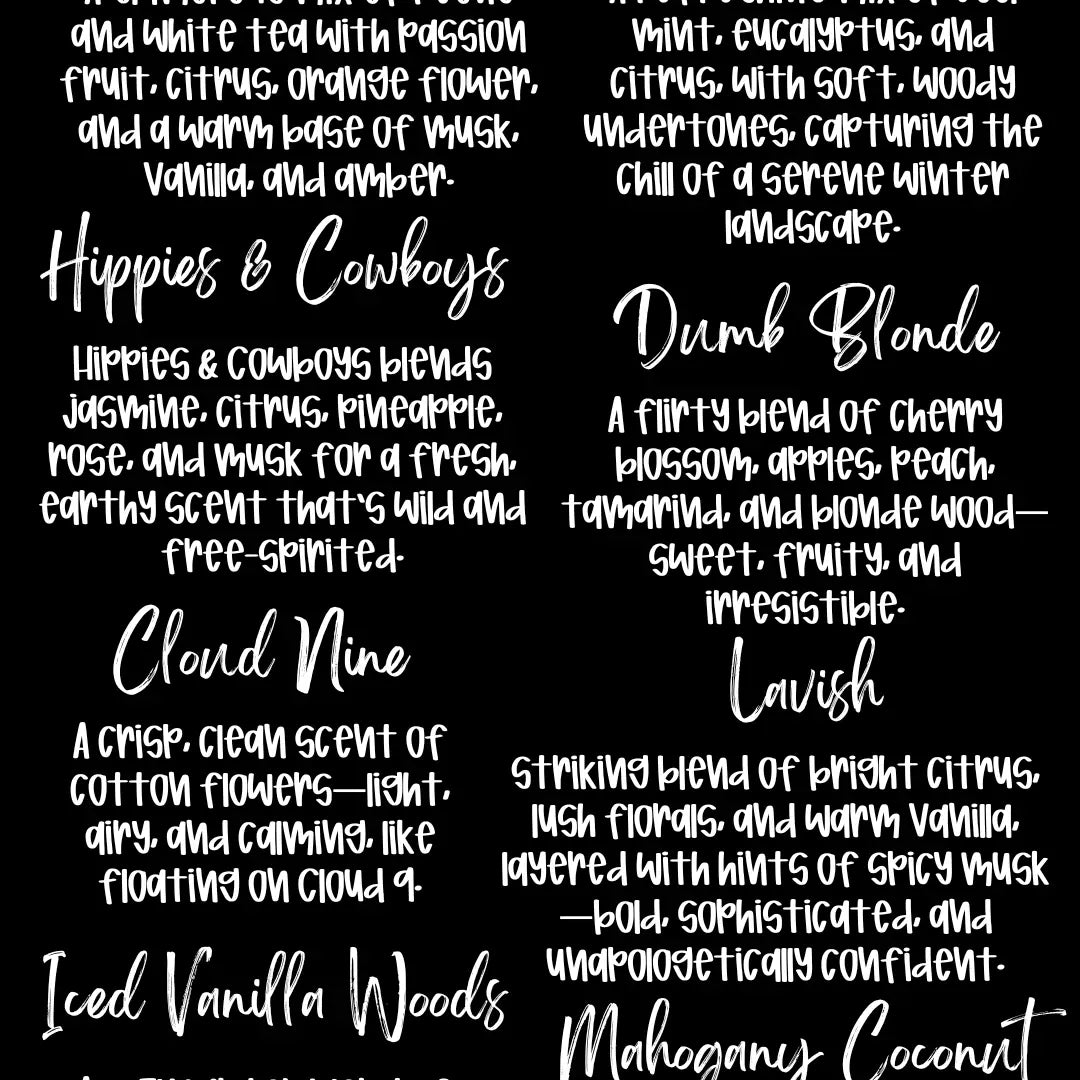 and white tea with passion
fruit, citrus, orange flower,
and a warm base of musk,
vanilla, and amber.
Hippies & Cowboys
Hippies & Cowboys blends
jasmine, citrus, pineapple,
rose, and musk for a fresh,
earthy scent that's wild and
free-spirited.
Cloud Nine
A crisp, clean scent of
cotton flowers—light,
airy, and calming, like
floating on cloud 9.
Iced Vanilla Woods
mint, eucalyptus, and
citrus, with soft, woody
undertones, capturing the
chill of a serene winter
landscape.
Dumb Blonde
A flirty blend of cherry
blossom, apples, peach,
tamarind, and blonde wood—
sweet, fruity, and
irresistible.
Lavish
striking blend of bright citrus,
lush florals, and warm vanilla,
layered with hints of spicy musk
—bold, sophisticated, and
unapologetically confident.
Mahogany Coconut